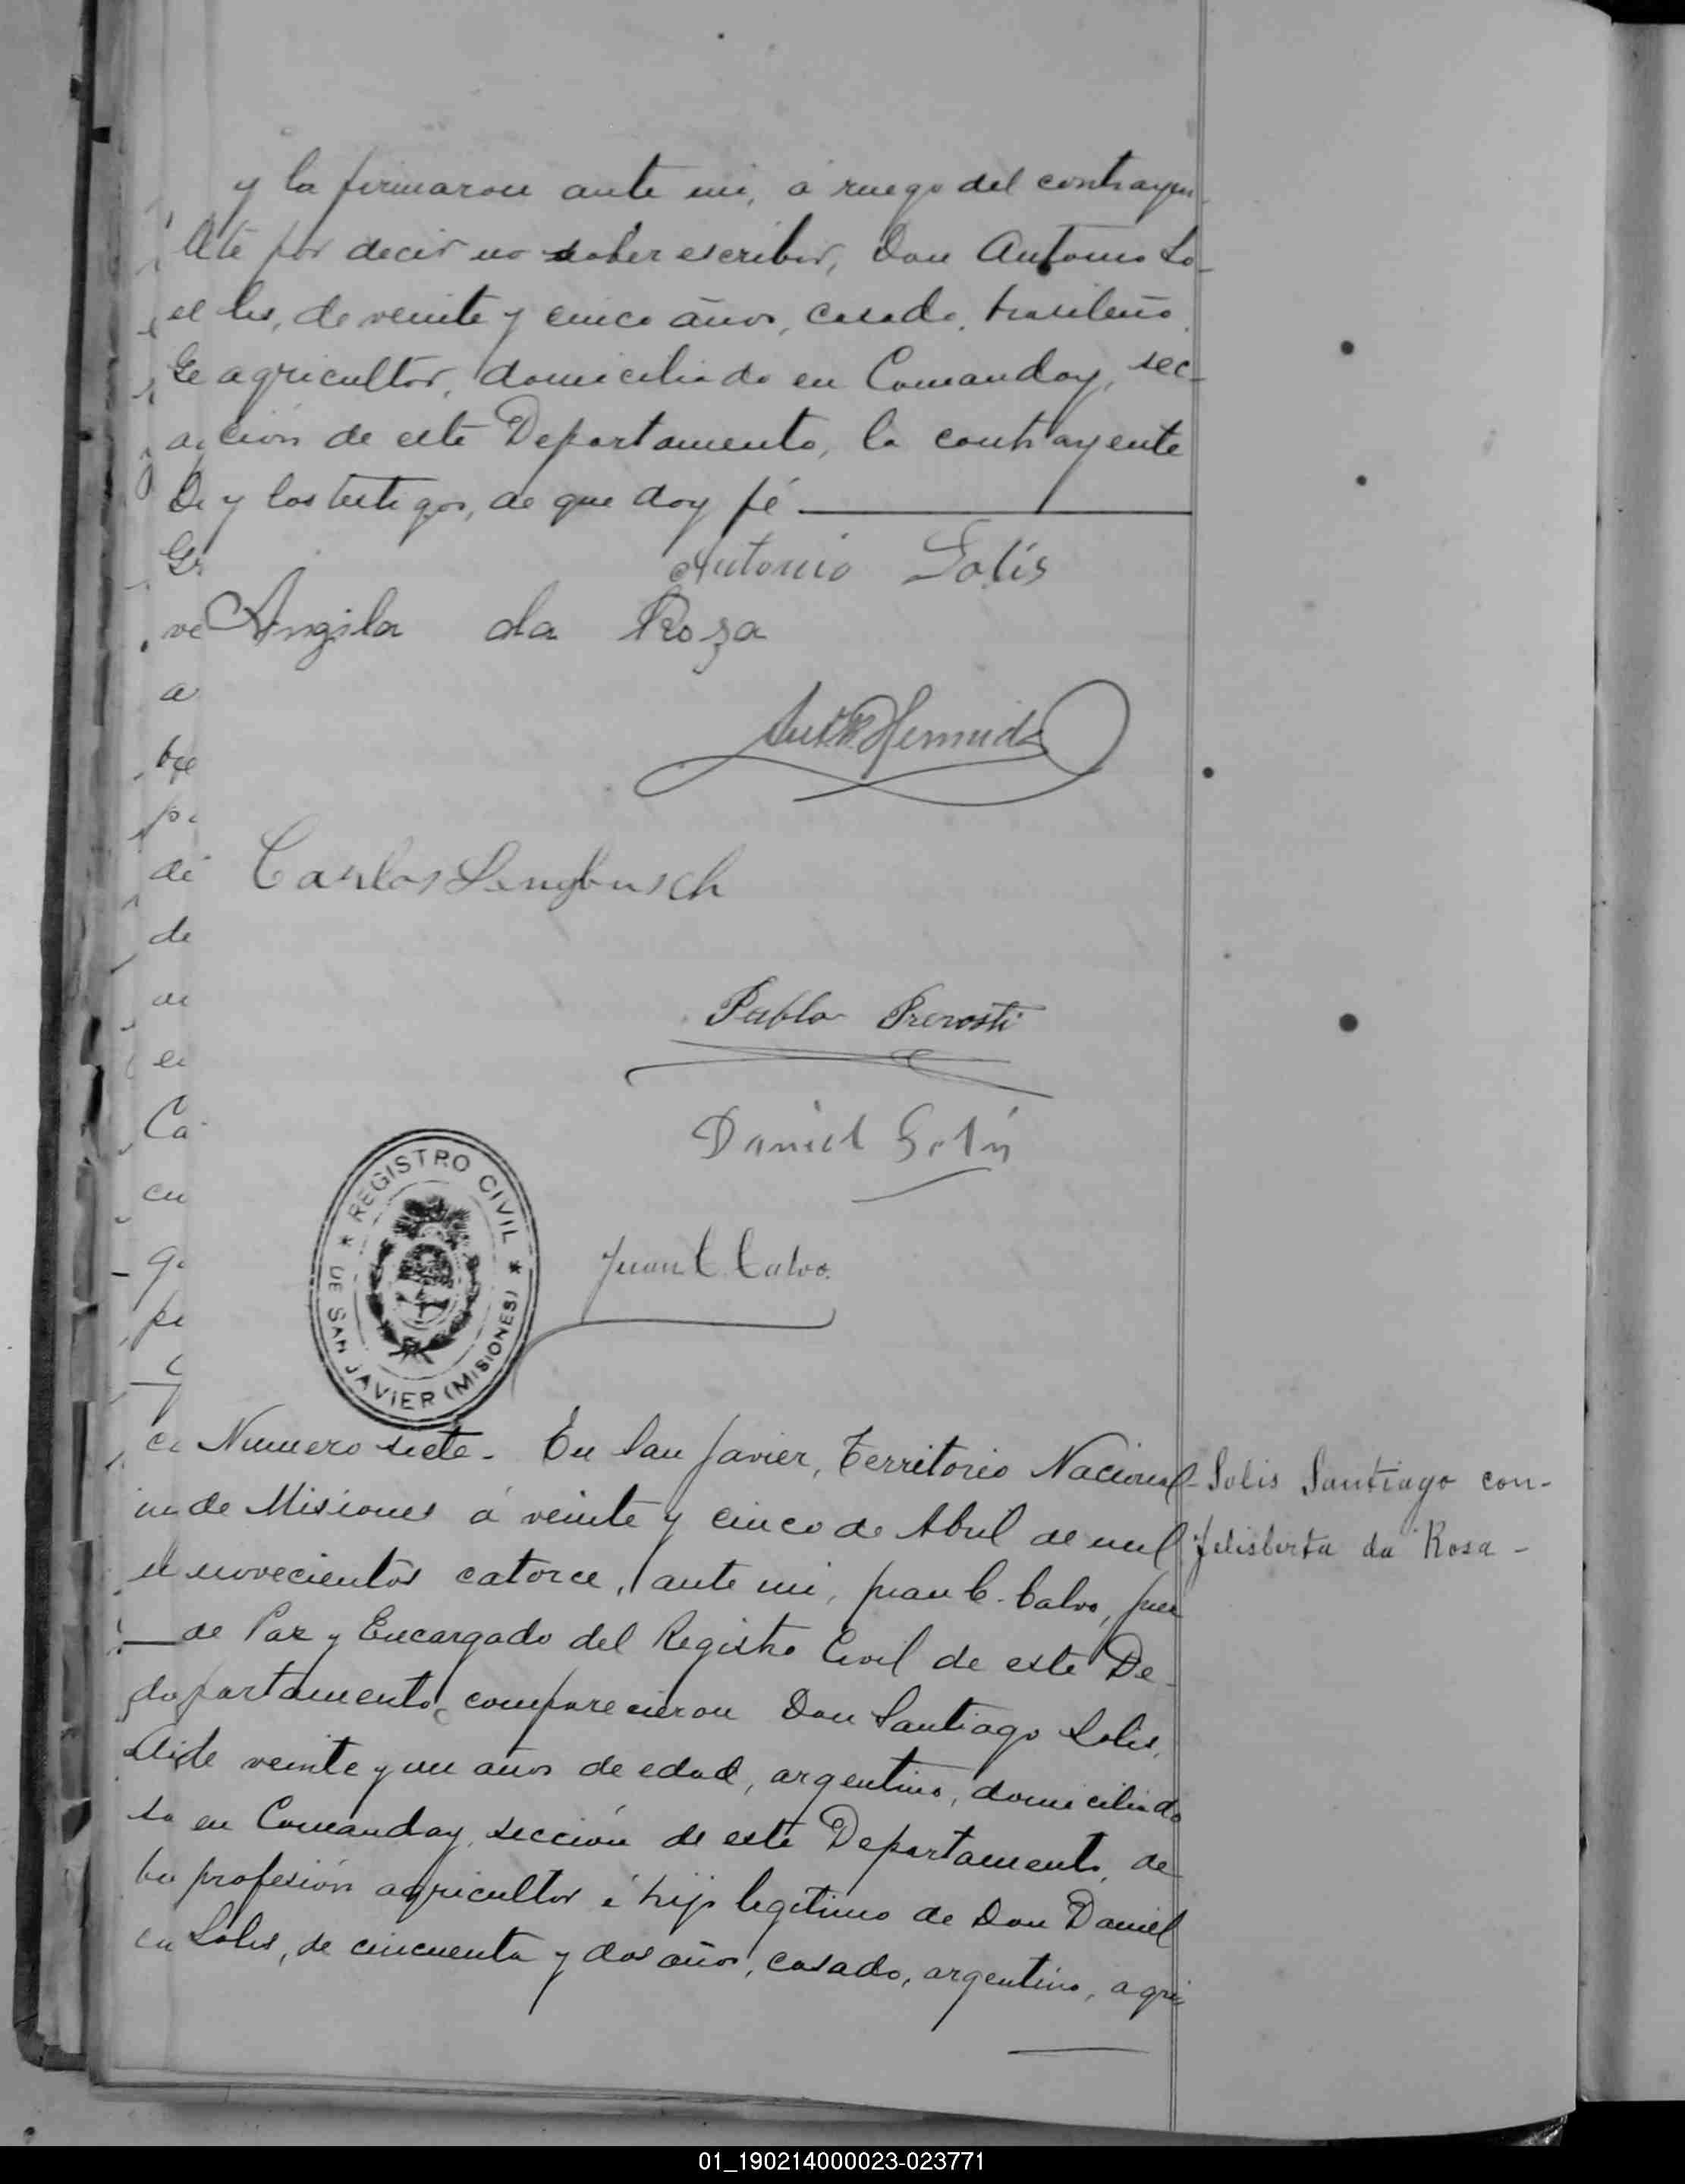 y la firmaron ante mi, á ruego del contrayen-
te por decir no saber escribir, Don Antonio So-
lis, de veinte y cinco años, casado, brasileño,
agricultor, domiciliado en Comanday, sec-
ción de este Departamento, la contrayente
y los testigos, de que doy fé
Antonio Solis
Angila da Roza
Hermida
Carlos Lengbusch
Pablo Prevosti
Daniel Solis
REGISTRO CIVIL
DE SAN JAVIER (MISIONES)
Juan C. Calvo
Numero siete. En San Javier, Territorio Nacional
de Misiones á veinte y cinco de Abril de mil
novecientos catorce, ante mi, Juan C. Calvo, Juez
de Paz y Encargado del Registro Civil de este De-
partamento, comparecieron Don Santiago Solis,
de veinte y un años de edad, argentino, domiciliado
en Comanday, sección de este Departamento, de
profesión agricultor é hijo legitimo de Don Daniel
Solis, de cincuenta y dos años, casado, argentino, agri-
Solis Santiago con-
Felisberta da Rosa -
01_190214000023-023771